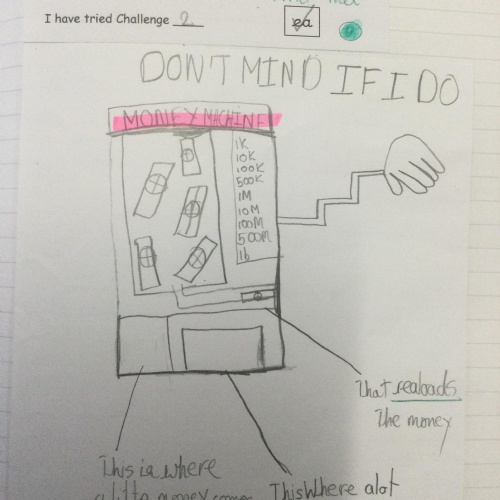 I have tried Challenge 2
ea
DON'T MIND IF I DO
MONEY MACHINE
1K
10K
100K
500K
1M
10M
100M
500M
1b
That realoads
The money
This is where
a litto money comes
This Where alot